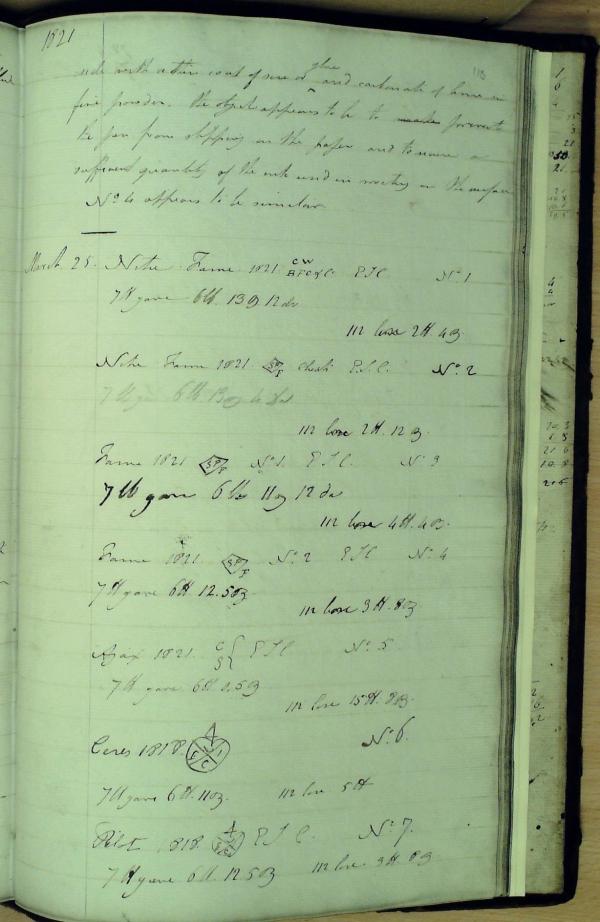 1821
made with a thin coat of size or glue and carbonate of lime in
fine powder. the object appears to be to prevent
the pen from slipping on the paper and to
sufficient quantity of the ink used in writing on the surface
No 4 appears to be similar
March 25. Nitre Fame 1821 CW EIC No 1
7 lb gave 6 lb. 13 oz 12 drs
112 lose 2 lb. 4 oz.
Nitre Fame 1821 Chest E.I.C. No. 2
7 lb gave 6 lb 13 oz drs
112 lose 2 lb. 12 oz.
Fame 1821 No 1. E I C. No 3
7 lb gave 6 lbs 11 oz 12 drs
112 lose 4 lb. 4 oz.
Fame 1821. No 2 EIC No. 4
7 lb gave 6 lb 12.5 oz
112 lose 3 lb. 8 oz
Ajax 1821. C S E I C No. 5
7 lb gave 6 lb 0.5 oz
112 lose 15 lb. 8 oz.
Ceres 1818. No. 6.
7 lb gave 6 lb. 11 oz. 112 lose 5 lb
Pilot 1818. E I C. No. 7.
7 lb gave 6 lb. 12.5 oz 112 lose. 3 lb 8 oz